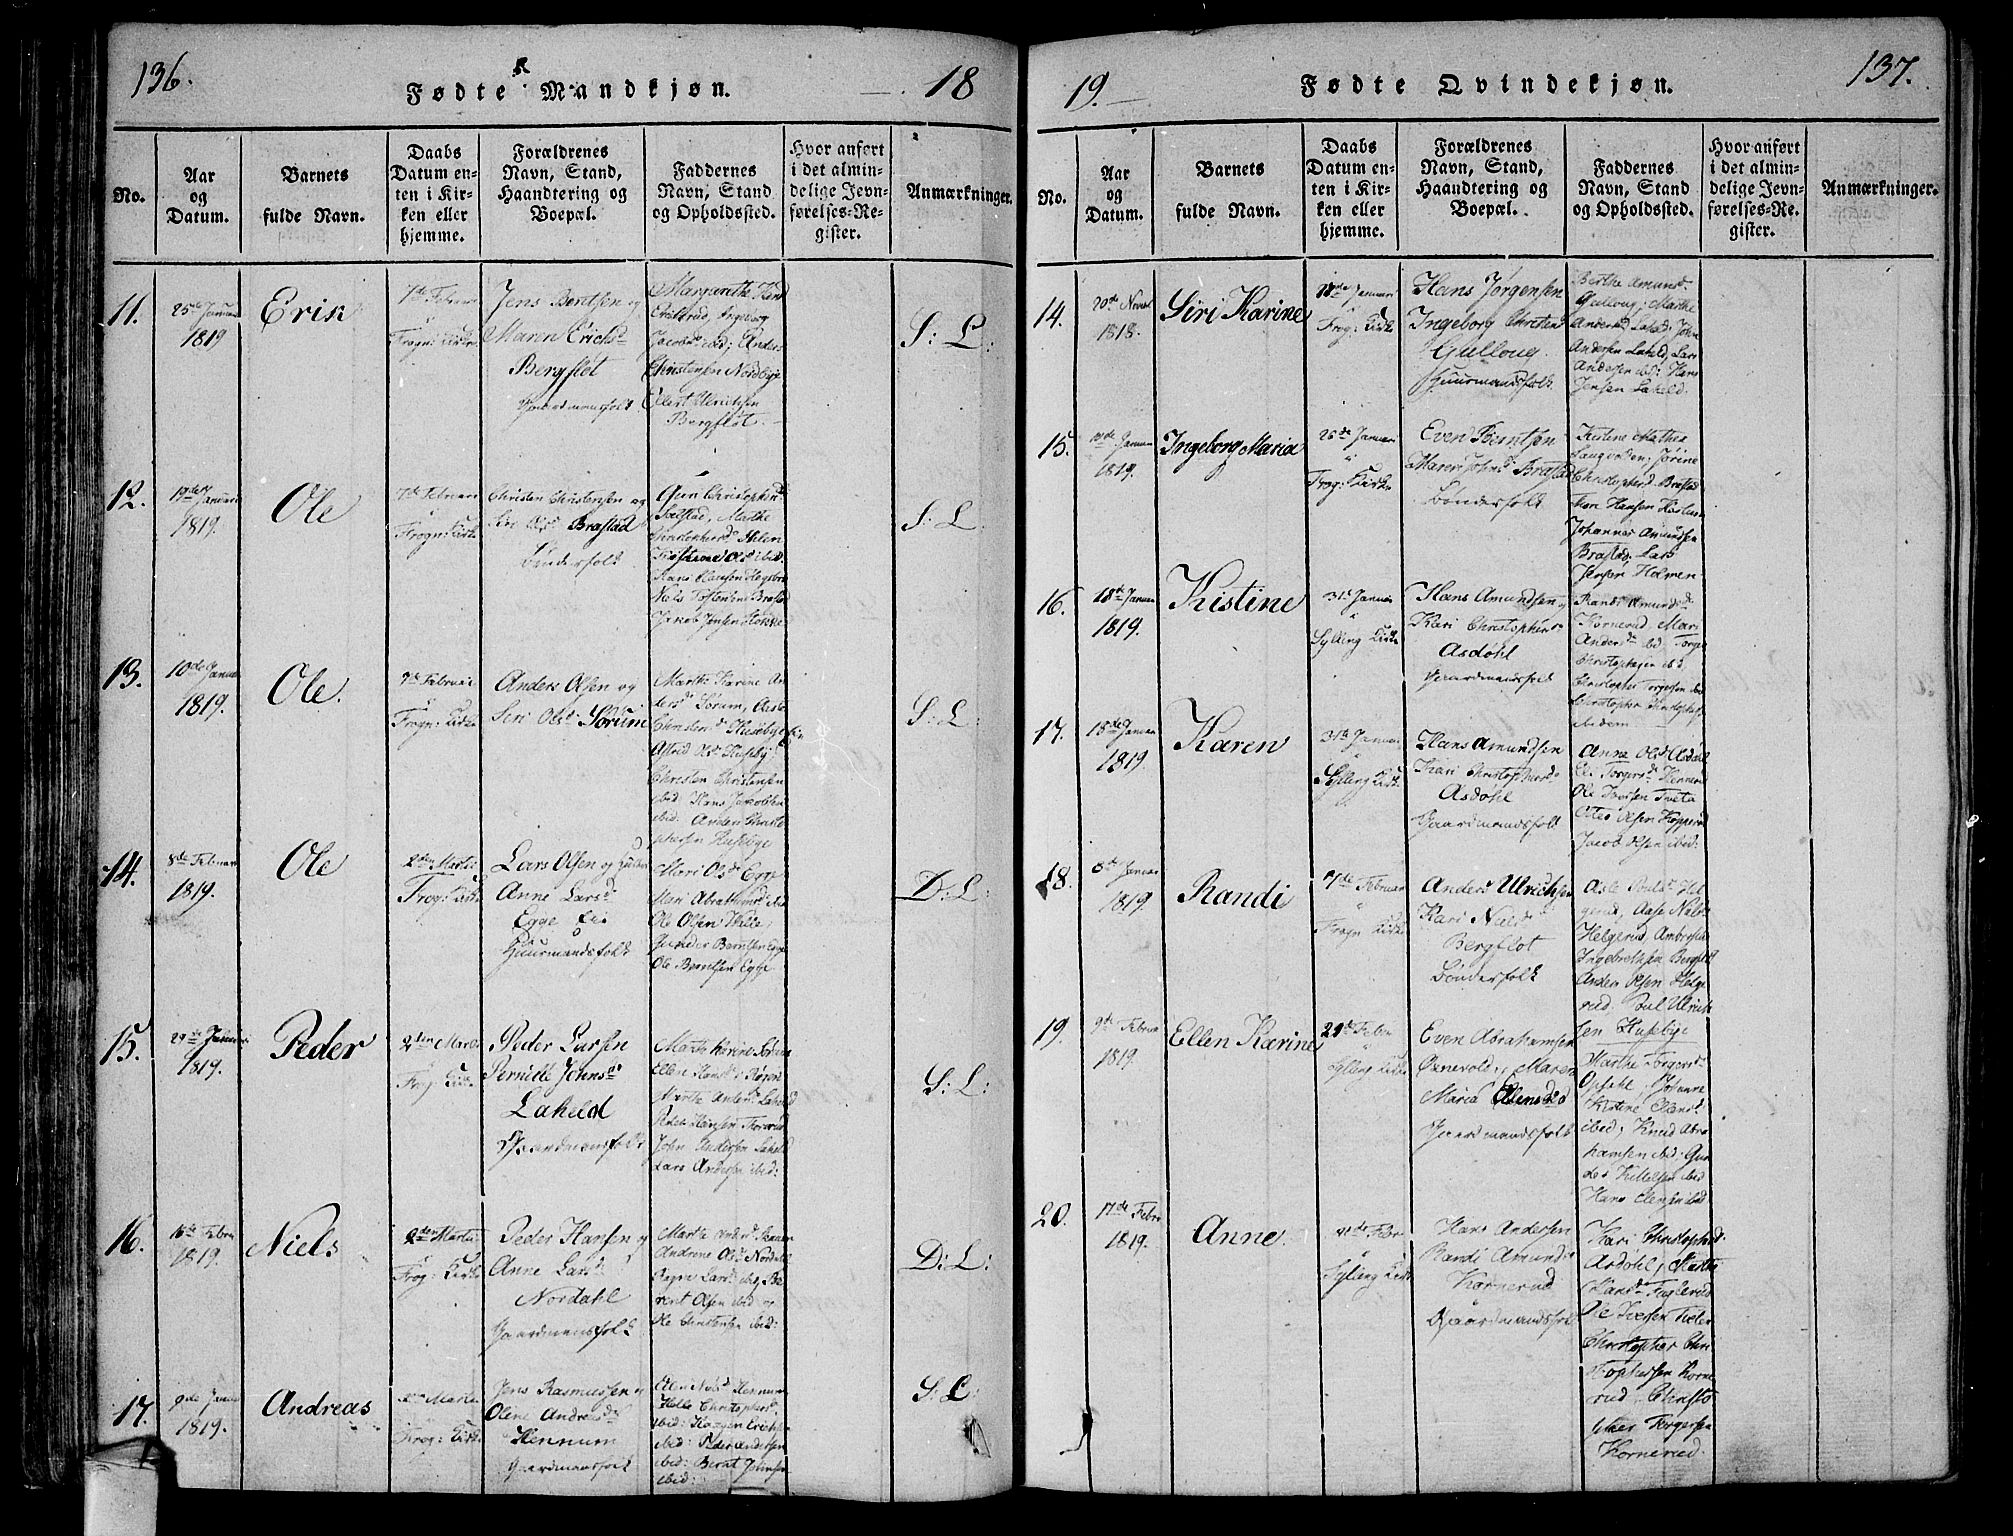 136.
Fødte Mandkjøn.
18
No.
Aar og Datum.
Barnets fulde Navn.
Daabs Datum enten i Kirken eller hjemme.
Forældrenes Navn, Stand, Haandtering og Boepæl.
Faddernes Navn, Stand og Opholdssted.
Hvor anført i det almindelige Jevnførelses-Register.
Anmærkninger.
11.
25de Januar
1819
Erik
7de Februar
Frogn: Kirke
Jens Berntsen og
Maren Erichs
Bergfløt
Gaardmansfolk
Margarethe
Ingeborg
Jacobsd ibid; Anders
Christensen Nordbye
Ellert Ulrichsen
Bergfløt.
S: L:
12.
Januar
1819.
Ole
7de Februar
Frogn: Kirke
Christen Christensen og
Siri Olsd Brastad
Bønderfolk
Gun Christophersd
Solstad, Mathe
Kirstine Olsd ibid
Hans Clausen
Niels Brastad
Jakob Jensen Stokke
S: L:
13.
10de Januar
1819.
Ole.
7de Februar
Frogn: Kirke
Anders Olsen og
Siri Olsd: Sørum
Marthe Karine An
dersd Sørum,
Huseby
Astrid Olsd Huseby:
Christen Christensen
ibid: Hans Jakobsen
ibid: Anders Christo
phersen Husebye
S: L:
14.
8de Februar
1819.
Ole
2den Martii
Frog: Kirke
Lars Olsen og
Anne Larsd
Egge Eie
Huusmandsfolk
Mari Olsd Egge
Mari Abrahamsd ibid
Ole Olsen
Gunder Berntsen Egge
Ole Berntsen Egge
D: L:
15.
29de Januar
1819.
Peder
2den Marti
Frog: Kirke
Peder Larsen
Pernille Johnsd
Laheld
Gaardmansfolk
Marthe Karine Sørum
Ellen Hansd
Marthe Andersd Laheld
Peder Hansen
John Andersen Laheld
Lars Andersen ibid:
S: L:
16.
Febru
1819.
Niels
2den Martii
Frog: Kirke
Peder Hansen og
Anne Larsd
Nordahl
Gaardmansfolk
Marthe
Andrine Olsd Nordahl
Ragne Larsd ibid, Be
rent Olsen ibid og
Ole Christensen ibid:
D: L:
17.
9de Januar
1819.
Andreas
Martii
Frog: Kirke
Jens Rasmussen og
Oline Andreasd
Hennum
Gaardmansfolk
Ellen Nielsd Hennum
Helle Christophersd
ibid: Haagen Erichsen
ibid: Peder Andersen
ibid: Bernt Johnsen
ibid:
S: L:
19.
Fødte Qvindekjøn.
137.
No.
Aar og Datum.
Barnets fulde Navn.
Daabs Datum enten i Kirken eller hjemme.
Forældrenes Navn, Stand, Haandtering og Boepæl.
Faddernes Navn, Stand og Opholdssted.
Hvor anført i det almindelige Jevnførelses-Register.
Anmærkninger.
14.
20de Novbr
1818.
Siri Karine
Januar
Frog: Kirke
Hans Jørgensen
Ingeborg Christensd
Gulloug.
Huusmandsfolk
Berthe Amunsd
Gulloug; Marthe
Andersd Laheld; John
Andersen Laheld, Lars
Andersen ibid: Hans
Jensen Laheld.
15.
Januar
1819.
Ingeborg Maria
25de Januar
Frog: Kirke
Even Berntsen
Maren Johnsd Brastad
Bønderfolk
Kirstine Mathea
Jørine
Christophersd Brastad
Hansen
Johannes Amundsen
Brastad; Lars
Jensen Holmen
16.
18de Januar
1819.
Kistine
31te Januar
Sylling Kirke
Hans Amundsen og
Kari Christophersd
Asdøhl
Gaardmansfolk
Randi Amundsd
Kornerud, Mari
Andersd ibid Torger
Christophersen ibid
Christopher Torgersen ibid
Christopher Christophersen
ibidem
17.
18de Januar
1819.
Karen
31te Januar
Sylling Kirke
Hans Amundsen
Kari Christophersd
Asdøhl
Gaardmandsfolk
Anna Olsd Asdøhl
Eli Torgersd Kornerud
Ole Iversen Tveta
Otter Olsen Kopperud
Jacob Olsen ibid:
18.
8de Januar
1819.
Randi
7de Februar
Frogn Kirke
Anders Ulrichsen
Kari Nielsd
Bergfløt
Bønderfolk
Aisle Poulsd Hel
gerud, Aase Nielsd
Helgerud, Ambrosius
Ingebrethsen Bergfløt
Anders Olsen Helge
rud, Poul Ulrich
sen Husebye
19.
9de Februar
1819.
Ellen Karine
21de Febru
Sylling Kirke
Even Abrahamsen
Øxnevold; Maren
Maria Olensd
Gaardmandsfolk
Marthe Torgersd
Opsahl; Johanne
Kirstine Elensd
ibid; Knud Abra
hamsen ibid; Gun
der Kittelsen ibid
Hans Clensen ibid
20.
17de Febru
1819.
Anne
21de Febr
Sylling Kirke
Hans Andersen
Randi Amundsd
Kornerud
Gaardmandsfolk
Kari Christophersd:
Asdøhl, Marthe
Hansd Fuglerud
Ole Iversen Tveter
Christopher Chri
stophersen Korne
rud. Christo
pher Torgersen
Kornerud.